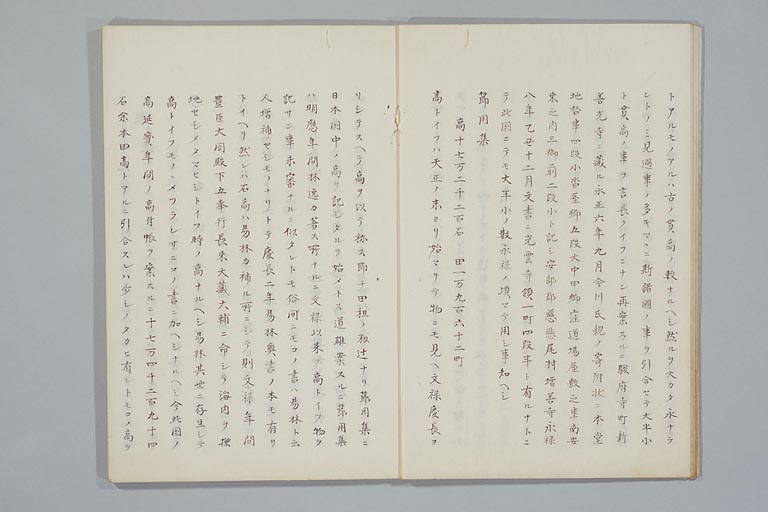 トアルモノアルハ古ノ貫高ノ数ナルヘシ然ルヲ大カタ永ナラ
ントノミ見過事ノ多キマヽニ斯諸國ノ事ヲ引合セテ大半小
ト貫高ノ事ヲ言長クイフニナン再案スルニ駿府寺町新
善光寺ニ蔵ル永正六年九月今川氏親ノ寄附状ニ本堂
地替事四段小沓屋郷五段大中田郷窪道場屋敷之東南安
東之内三御前二段小ト記シ安部郡慈悲尾村増善寺永禄
八年乙丑十二月文書ニ光雲寺領一町四段半ト有ルナトニ
テ此國ニテモ大半小ノ数永禄ノ頃マテ用シ事知ヘシ
節用集
高十七万二千二百石 田一万九百六十二町
高トイフハ天正ノ末ヨリ始マリテ物ニモ見ヘ文禄慶長ヲ
リシテスヘテ高ヲ以テ称ス節チ田租ノ税辻ナリ節用集ニ
日本國中ノ高ヲ記モタルヲ始メトス道雄案スルニ節用集
ハ明應年間林逸カ著ス所ナルニ文禄以来ノ高トイフ物ヲ
記サン事未審ナルニ似タレトモ俗間ニモコノ書ハ易林ト云
人増補セシモノナリトテ慶長二年易林奥書ノ本モ有リ
トイヘリ然レハ石高ハ易林カ補ル所ニシテ則文禄年間
豊臣大閤殿下五奉行長束大蔵大輔ニ命シテ海内ヲ撿
地セシメタマヒシトイフ時ノ高ナルヘシ易林其世ニ存生シテ
高トイフモノヽメツラシサニコノ書ニ加ヘシナルヘシ今此國ノ
高延寶年間ノ高附帳ヲ案スルニ十七万四千二百九十四
石余本田高トアルニ引合スレハ少シノタカヒ有レトモコノ高ヲ